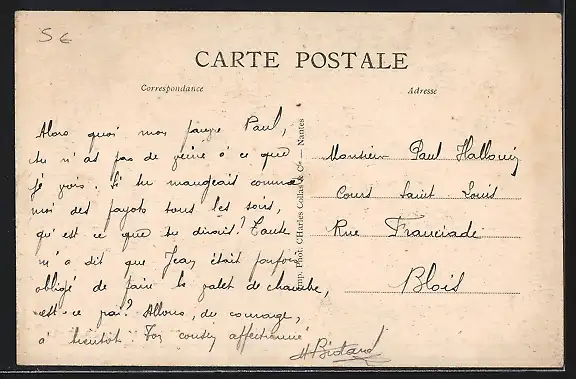 5 €
CARTE POSTALE
Correspondance
Adresse
Alors quoi mon pauvre Paul,
tu n'as pas de veine à ce que
je vois. Si tu mangeais comme
moi des fayots tous les soirs,
qu'est ce que tu dirais? Tante
m'a dit que Jean était parfois
obligé de faire le valet de chambre,
est-ce vrai? Allons, du courage,
à bientôt. Ton cousin affectionné
Imp. Phot. CHarles Collas & Cie — Nantes
Monsieur Paul Hallouin
Cours Saint Louis
Rue Franciade
Blois